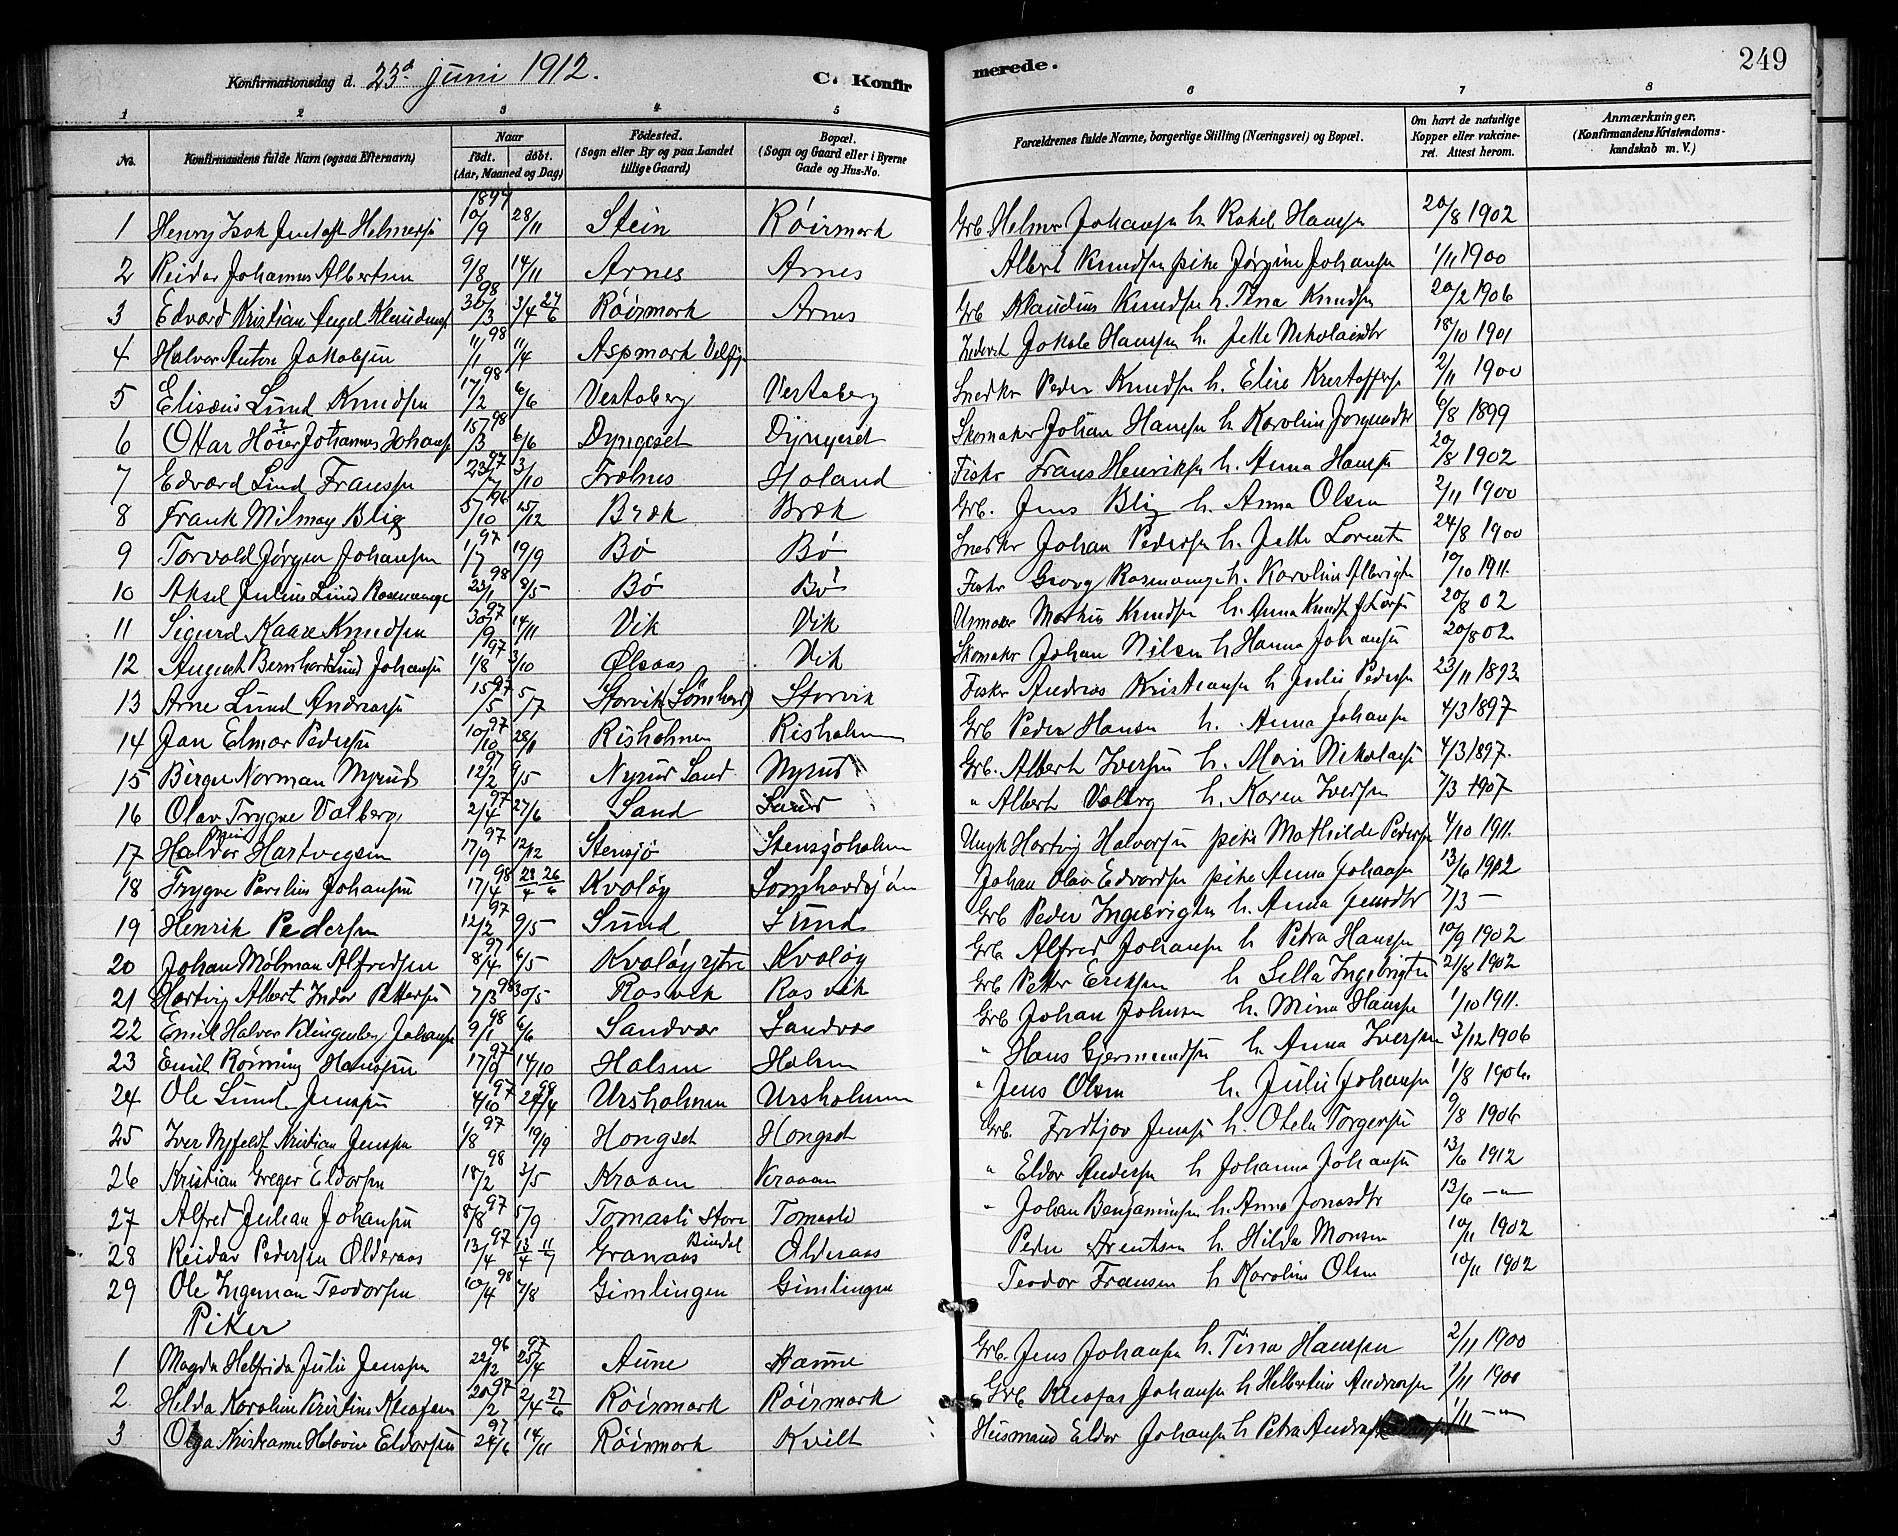 Konfirmationsdag d. 23d juni 1912. C. Konfirmerede. 249
1 2 3 4 5 6 7 8
No. Konfirmandens fulde Navn (ogsaa Efternavn) Naar Født. døbt. (Aar, Maaned og Dag) Fødested. (Sogn eller By og paa Landet tillige Gaard) Bopæl. (Sogn og Gaard eller i Byerne Gade og Hus-No. Forældrenes fulde Navne, borgerlige Stilling (Næringsvei) og Bopæl. Om havt de naturlige Kopper eller vakcineret. Attest herom. Anmærkninger. (Konfirmandens Kristendomskundskab m. V.)
1 Henry Isak Helmersen 10/9 28/11 Stein Røirmark Grb. Helmer Johansen h. Rakel Hansen 20/8 1902
2 Reidar Johannes Albertsen 9/8 14/11 Arnes Arnes Albert Knudsen pike Jørgine Johansen 1/11 1900
3 Edvard Kristian Angel Klaudiusen 98 30/3 3/4 27/6 Røirmark Arnes Grb Klaudius Knudsen h. Tina Knudsen 20/2 1906
4 Halvor Anton Jakobsen 98 11/1 11/4 Aspmark Jakob Hansen h. Jette Nikolaidtr 18/10 1901
5 Elisæus Lund Knudsen 98 17/2 6/6 Vestaberg Vestaberg Snedker Peder Knudsen h. Elise 2/11 1900
6 Ottar Høier Johannes Johansen 98 15/3 6/6 Dyngeset Dyngeset Skomaker Johan Hansen h Karoline 6/8 1899
7 Edvard Lund Fransen 97 23/7 3/10 Trælnes Holand Fisker Frans Henriksen h. Anna Hansen 20/8 1902
8 Frank Milmay Blix 96 5/10 25/12 Bræk Bræk Grb. Jens Blix h. Anna Olsen 2/11 1900
9 Torvald Jørgen Johansen 97 1/7 19/9 Bø Bø Snedker Johan Pedersen h. Jette 24/8 1900
10 Aksel Julius Lund 98 23/1 8/5 Bø Bø Fisker Georg h. Karoline 10/10 1911.
11 Sigurd Kaare Knudsen 97 30/9 14/11 Vik Vik Knudsen h. Anna 20/8 02
12 August Bernhard Lund Johansen 97 1/8 3/10 Ølsaas Vik Skomaker Johan Nilsen h Hanna Johansen 20/8 02
13 Arne Lund Andreasen 97 15/5 5/7 Storvik (Sømhovd) Storvik Fisker Andreas Kristiansen h Julie Pedersen 23/11 1893
14 Jan Elmar Pedersen 97 10/10 28/11 Risholmen Risholmen Grb Peder Hansen h. Anna Johansen 4/3 1897
15 Birger Norman Nyrud 97 12/2 9/5 Nyrud Sand Nyrud Grb. Albert Iversen h. Marie Nikolaisen 4/3 1897.
16 Olav Trygve Valberg 97 2/4 27/6 Sand Sand " Albert Valberg h. Karen Iversen 7/3 1907
17 Halvor Hartvigsen 97 17/9 12/12 Stensjø Stensjøholmen Ungk Hartvig Halvorsen pike Mathilde Pedersen 4/10 1911.
18 Trygve Parelius Johansen 98 17/4 28/4 26/6 Kvaløy Johan Olav Edvardsen pike Anna Johansen 13/6 1912
19 Henrik Pedersen 97 12/2 9/5 Sund Sund Grb Peder Ingebrigtsen h. Anna 7/3 —
20 Johan Mølman Alfredsen 97 8/4 6/5 Kvaløy ytre Kvaløy Grb. Alfred Johansen h Petra Hansen 10/9 1902
21 Hartvig Albert Indar Pettersen 98 7/3 30/5 Rosvik Rosvik Grb Petter Eriksen h Sella Ingebrigtsen 21/8 1902
22 Emil Halvor Klingenberg Johansen 98 9/1 6/6 Sandvær Sandvær Grb Johan Johnsen h. Mina Hansen 1/10 1911.
23 Emil Rønning Hansen 97 17/9 14/10 Halsen Halsen " Hans Gjermundsen h. Anna Iversen 3/12 1906
24 Ole Lund Jensen 97 4/10 98 24/4 Ursholmen Ursholmen " Jens Olsen h. Julie Johansen 1/8 1906.
25 Iver Nyfeldt Kristian Jensen 97 1/8 19/9 Hongset Hongset Grb. Fridtjov Jensen h. Otelie Torgersen 9/8 1906
26 Kristian Greger Eldorsen 98 18/2 3/5 Kraaen Kraaen " Eldor Andersen h Johanna Johansen 13/6 1912
27 Alfred Julian Johansen 97 8/8 5/9 Tomasli Store Tomasli " Johan Benjaminsen h. Anna Jonasdtr 13/6 —"—
28 Reidar Pedersen Olderaas 97 13/4 13/4 11/7 Granaas Bindal Olderaas Peder Arentsen h. Hilda Monsen 10/11 1902
29 Ole Ingeman Teodorsen 98 10/4 7/8 Gimlingen Gimlingen Teodor Fransen h Karoline Olsen 10/11 1902
Piker
1 Magda Helfrida Julie Jensen 96 22/12 97 25/4 Aune Grb. Jens Johansen h. Tina Hansen 2/11 1900
2. Hilda Karoline Kristine Kleofasen 97 20/2 2/4 27/6 Røirmark Røirmark Grb Kleofas Johansen h Helbertine Andreasen 1/11 1900
3 Olga Kristianne Eldorsen 97 24/6 14/11 Røirmark Kvilt Husmand Eldor Johansen h Petra 1/11 —"—